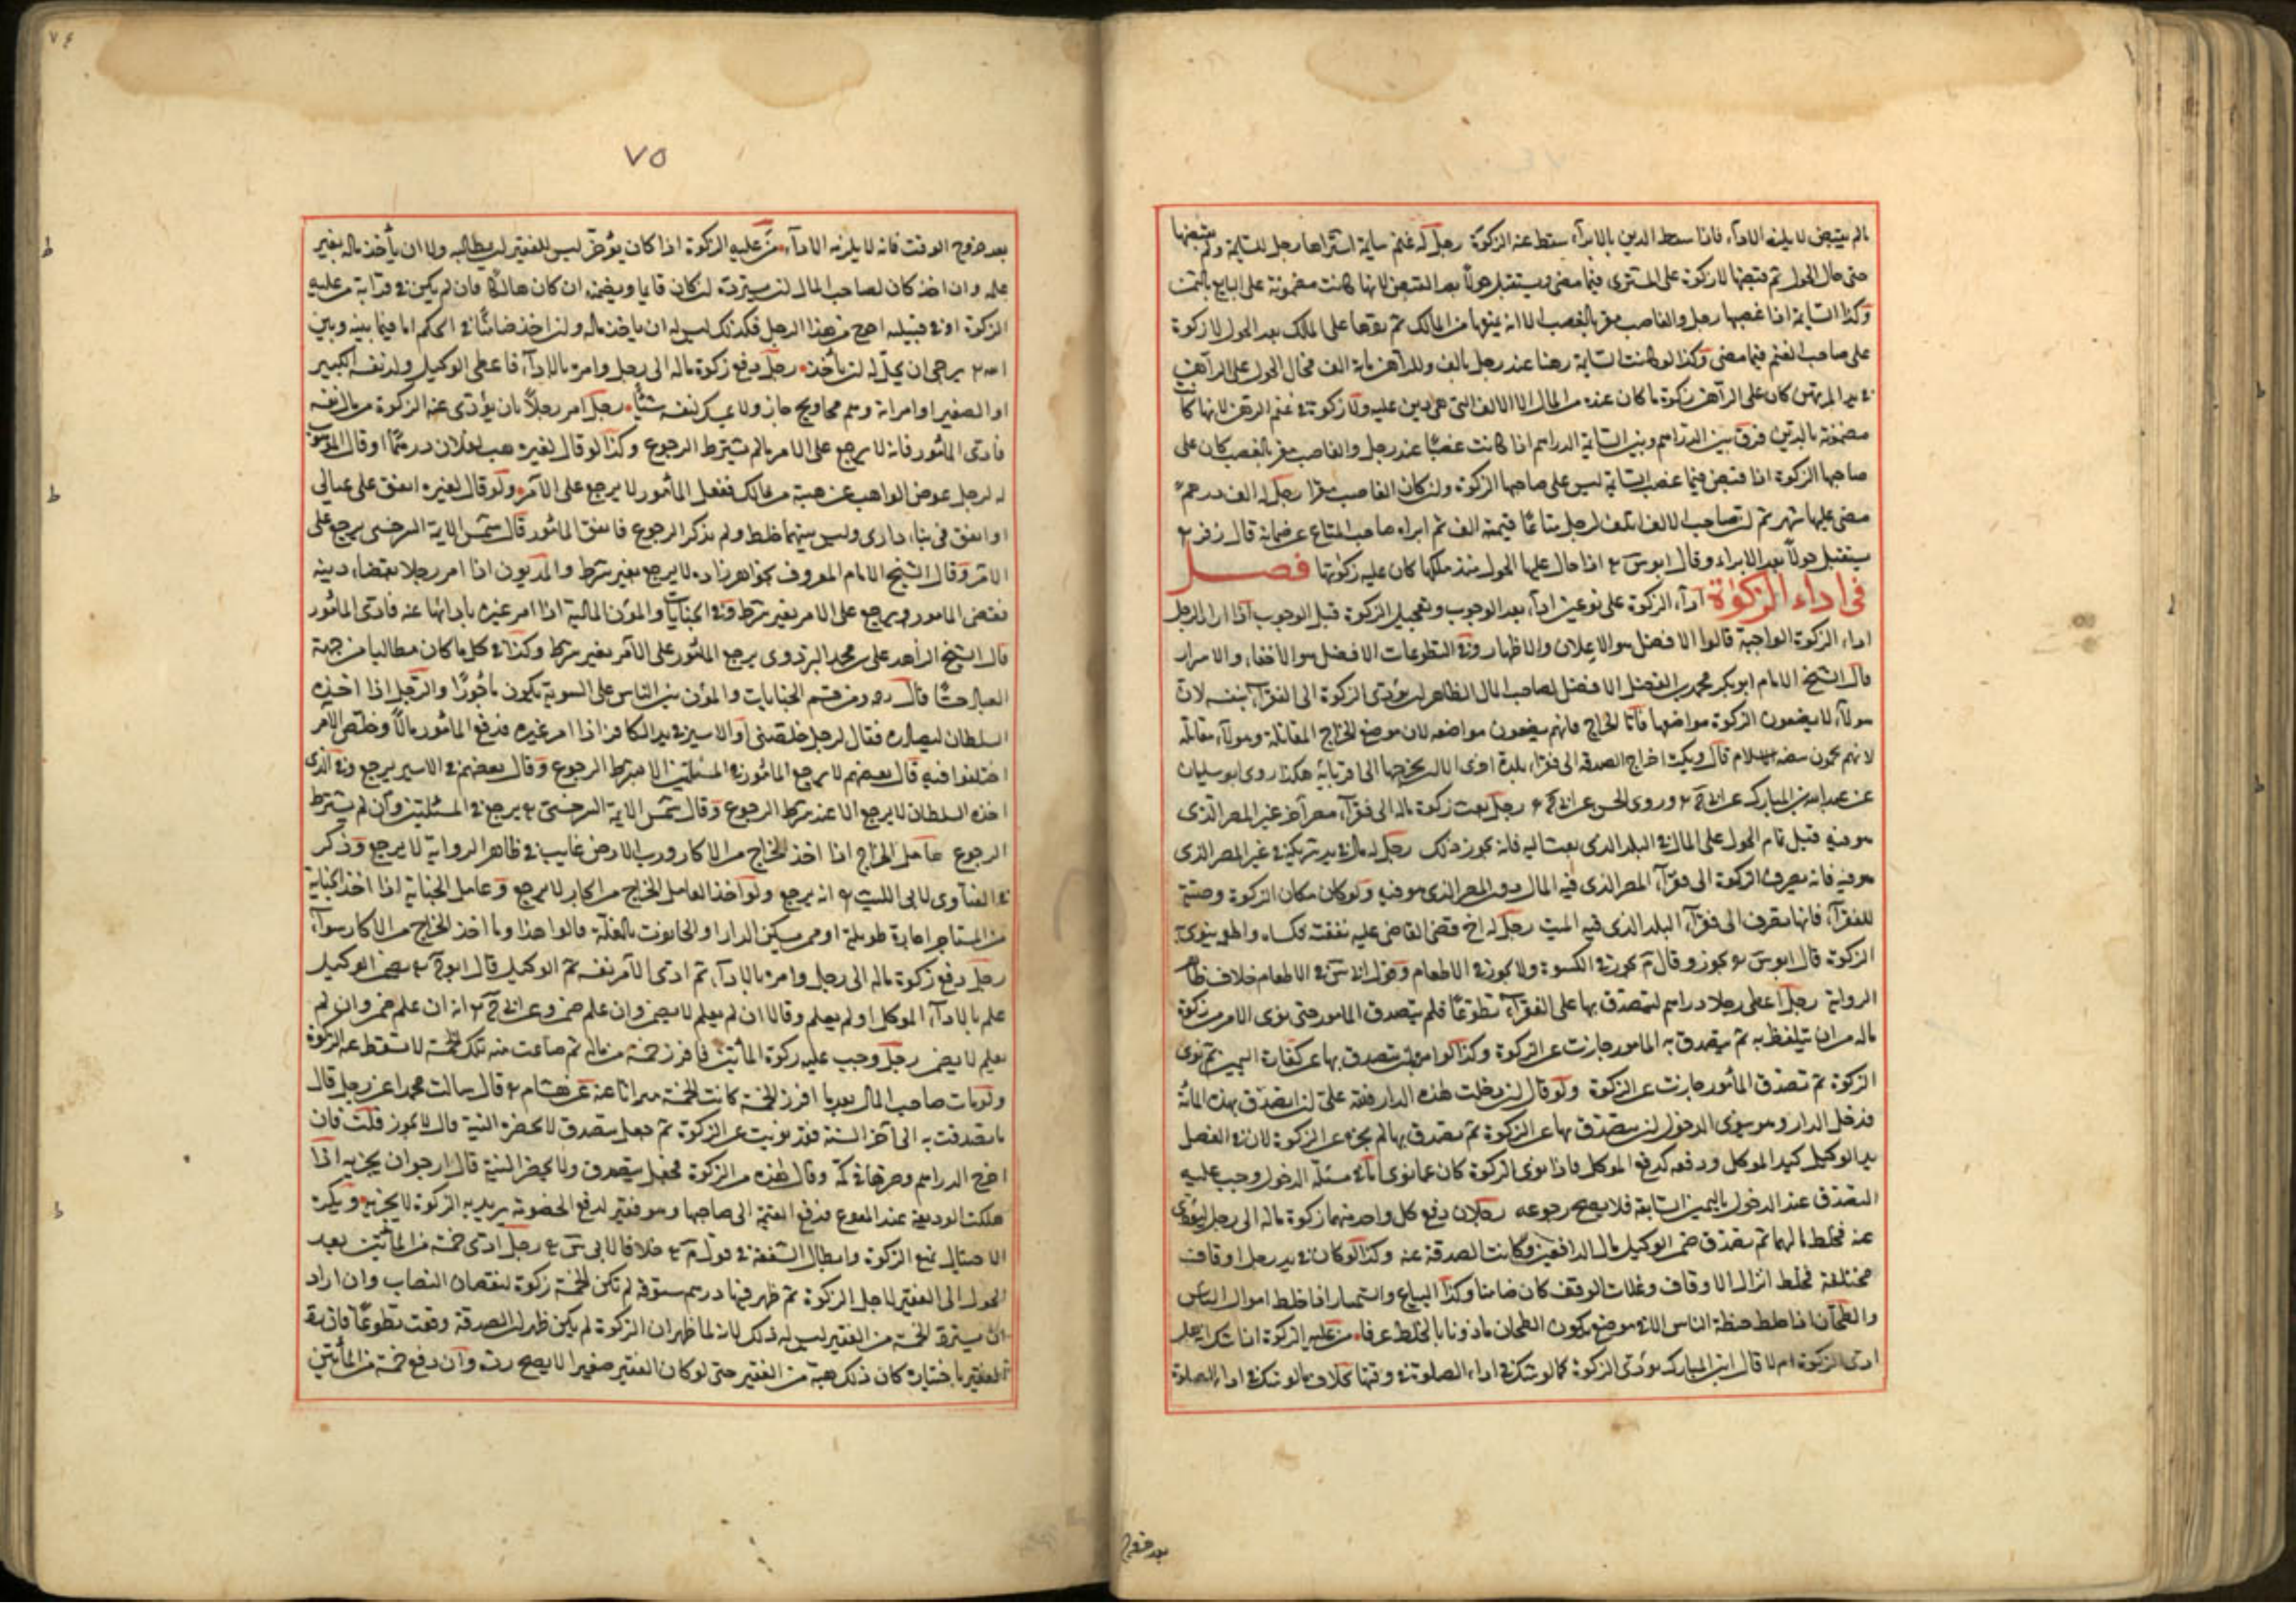 مالم يقبض لا يلزمه الاداء فاذا سقط الدين بالابراء سقط عنه الزكوة رجل له غنم سايمة اشتراها رجل للسايمة ولم يقبضها
حتى حال الحول ثم قبضها لا زكوة على المشترى فيما مضى ويستقبل حولا بعد القبض لانها كانت مضمونة على البايع بالثمن
وكذا السايمة اذا غصبها رجل والغاصب مقر بالغصب الا انه يمنعها من المالك ثم ردها على المالك بعد الحول لا زكوة
على صاحب الغنم فيما مضى وكذا لو كانت السايمة رهنا عند رجل بالف وللراهن ماية الف فحال الحول على الراهن
فى يد المرتهن كان على الراهن زكوة ما كان عنده من المال الا الالف التى هى دين عليه ولا زكوة فى غنم الرهن لانها كانت
مضمونة بالدين فرق بين الدراهم وبين السايمة الدراهم اذا كانت غصبا عند رجل والغاصب مقر بالغصب كان على
صاحبها الزكوة اذا قبض فيما غصب السايمة ليس على صاحبها الزكوة وان كان الغاصب مقرا رجل له الف درهم
مضى عليها شهر ثم ان صاحب الالف اتلف لرجل متاعا قيمته الف ثم ابراه صاحب المتاع عن ضمانه قال زفر
يستقبل حولا بعد الابراء وقال ابو س اذا حال عليها الحول منذ ملكها كان عليه زكوتها فصل
فى اداء الزكوة اداء الزكوة على نوعين اداء بعد الوجوب وتعجيل الزكوة قبل الوجوب اذا اراد الرجل
اداء الزكوة الواجبة قالوا الافضل هو الاعلان والاظهار وفى التطوعات الافضل هو الاخفاء والاسرار
قال الشيخ الامام ابو بكر محمد بن الفضل الافضل لصاحب المال الظاهر ان يؤدى الزكوة الى الفقراء بنفسه لان
هولاء لا يضعون الزكوة مواضعها فاما الخراج فانهم يضعون مواضعه لان موضع الخراج المقاتلة وهولاء مقاتلة
لانهم يحمون بيضة الاسلام قال ويكره اخراج الصدقة الى فقراء بلدة اخرى الا ان يخرجها الى قرابائه هكذا روى ابو سليمان
عن عبد الله بن المبارك عن ابى ح وروى الحسن عن ابى ح رجل بعث زكوة ماله الى فقراء مصر اخر غير المصر الذى
هو فيه قبل تمام الحول على المال فى البلد الذى بعث اليه فانه يجوز ذلك رجل له مال فى يد شريكه فى غير المصر الذى
هو فيه فانه يصرف الزكوة الى فقراء المصر الذى فيه المال دون المصر الذى هو فيه ولو كان مكان الزكوة وصية
للفقراء فانها تصرف الى فقراء البلد الذى فيه الميت رجل له اخ قضى القاضى عليه نفقته فكساه واطعمه ينوى به
الزكوة قال ابو س يجوز وقال م يجوز فى الكسوة ولا يجوز فى الاطعام وقول ابى س فى الاطعام خلاف ظاهر
الرواية رجل اعطى رجلا دراهم ليتصدق بها على الفقراء تطوعا فلم يتصدق المامور حتى نوى الامر من زكوة
ماله من ان يتلفظ به ثم تصدق به المامور جازت عن الزكوة وكذا لو امر ان يتصدق بها عن كفارة اليمين ثم نوى
الزكوة ثم تصدق المأمور جازت عن الزكوة ولو قال ان دخلت هذه الدار فلله على ان اتصدق بهذه المائة
فدخل الدار وهو ينوى الدخول ان يتصدق بها عن الزكوة ثم تصدق بها لم يجزه عن الزكوة لان فى الفصل
يد الوكيل كيد الموكل ودفعه كدفع الموكل فاذا نوى الزكوة كان عما نوى اما فى مسئلة الدخول وجب عليه
التصدق عند الدخول باليمين السابقة فلا يصح رجوعه رجلان دفع كل واحد منهما زكوة ماله الى رجل ليؤدى
عنه فخلط مالهما ثم تصدق ضمن الوكيل مال الدافعين وكانت الصدقة عنه وكذا لو كان فى يد رجل اوقاف
مختلفة فخلط انزال الاوقاف وغلات الوقف كان ضامنا وكذا البياع والسمسار اذا خلط اموال الناس
والطحان اذا خلط حنطة الناس الا فى موضع يكون الطحان ماذونا بالخلط عرفا من عليه الزكوة اذا شك انه هل
ادى الزكوة ام لا قال ابن المبارك يؤدى الزكوة كما لو شك فى اداء الصلوة فى وقتها بخلاف ما لو شك فى اداء الصلوة
بعد خروج
٧٤
٧٥
بعد خروج الوقت فانه لا يلزمه الاداء من عليه الزكوة اذا كان يؤخر ليس للفقير ان يطالبه ولا ان يأخذ ماله بغير
علمه وان اخذ كان لصاحب المال ان يسترده ان كان قايما ويضمنه ان كان هالكا فان لم يكن فى قرابة من عليه
الزكوة او فى قبيلته احوج من هذا الرجل فكذلك ليس له ان ياخذ ماله وان اخذ ضامنا فى الحكم اما فيما بينه وبين
الله يرجى ان يحل له ان يأخذ رجل دفع زكوة ماله الى رجل وامره بالاداء فاعطى الوكيل ولد نفسه الكبير
او الصغير او امراته وهم محاويج جاز ولا يمسك لنفسه شيئا رجل امر رجلا بان يؤدى عنه الزكوة من مال نفسه
فادى المأمور فانه لا يرجع على الامر مالم يشترط الرجوع وكذا لو قال لغيره هب لفلان درهما او قال الموهوب
له لرجل عوض الواهب عن هبته من مالك ففعل المأمور لا يرجع على الامر ولو قال لغيره انفق على عيالى
او انفق فى بناء دارى وليس بينهما خلط ولم يذكر الرجوع فانفق المأمور قال شمس الايمة السرخسى يرجع على
الامر وقال الشيخ الامام المعروف بخواهرزاده لا يرجع بغير شرط والمديون اذا امر رجلا بقضاء دينه
فقضى المامور ويرجع على الامر بغير شرط وفى الجنايات والمؤن المالية اذا امر غيره بادائها عنه فادى المأمور
قال الشيخ الزاهد على بن محمد البزدوى يرجع المأمور على الامر بغير شرط وكذا فى كل ما كان مطالبا من جهة
العباد حسا قال ومن قسم الجنايات والمؤن بين الناس على السوية يكون ماجورا والرجل اذا اخذه
السلطان ليصادره فقال لرجل خلصنى او الاسير فى يد الكافر اذا امر غيره فدفع المأمور مالا وخلص الامر
اختلفوا فيه قال بعضهم لا يرجع المأمور فى المسئلتين الا بشرط الرجوع وقال بعضهم فى الاسير يرجع وفى الذى
اخذه السلطان لا يرجع الا عند شرط الرجوع وقال شمس الايمة السرخسى يرجع فى المسئلتين وان لم يشترط
الرجوع عامل الخراج اذا اخذ الخراج من الاكار ورب الارض غايب فى ظاهر الرواية لا يرجع وذكر
فى الفتاوى لابى الليث انه يرجع ولو اخذ العامل الخراج من اكار لا يرجع وعامل الجناية اذا اخذ الجناية
من المستاجر اجارة طويلة او ممن يسكن الدار او الحانوت بالغلة قالوا هذا وما اخذ الخراج من الاكار سواء
رجل دفع زكوة ماله الى رجل وامره بالاداء ثم ادى الامر نفسه ثم الوكيل قال ابو ح يضمن الوكيل
علم باداء الموكل او لم يعلم وقالا ان لم يعلم لا يضمن وان علم ضمن وعن ابى ح انه ان علم ضمن وان لم
يعلم لا يضمن رجل وجب عليه زكوة المأتين فافرز خمسة من ماله ثم ضاعت منه تلك الخمسة لا تسقط عنه الزكوة
ولو مات صاحب المال بعد ما افرز الخمسة كانت الخمسة ميراثا عنه عن هشام قال سالت محمدا عن رجل قال
ما تصدقت به الى آخر السنة فقد نويت عن الزكوة ثم جعل يتصدق لا يحضره النية قال لا يجوز قلت فان
اخرج الدراهم وصرها فى كمه وقال هذه من الزكوة فجعل يتصدق ولا يحضر النية قال ارجو ان يجزيه اذا
هلكت الوديعة عند المودع فدفع القيمة الى صاحبها وهو فقير لدفع الخصومة يريد به الزكوة لا يجزيه ويكره
الاحتيال لمنع الزكوة وابطال الشفعة فى قول م خلافا لابى س رجل ادى خمسة من المأتين بعد
الحول الى الفقير لاجل الزكوة ثم ظهر فيها درهم ستوقة لم تكن الخمسة زكوة لنقصان النصاب وان اراد
ان يسترد الخمسة من الفقير ليس له ذلك لانه لما ظهر ان الزكوة لم يكن ظهر ان الصدقة وقعت تطوعا فان رده
الفقير باختياره كان ذلك هبة من الفقير حتى لو كان الفقير صغيرا لا يصح رده وان دفع خمسة من المأتين